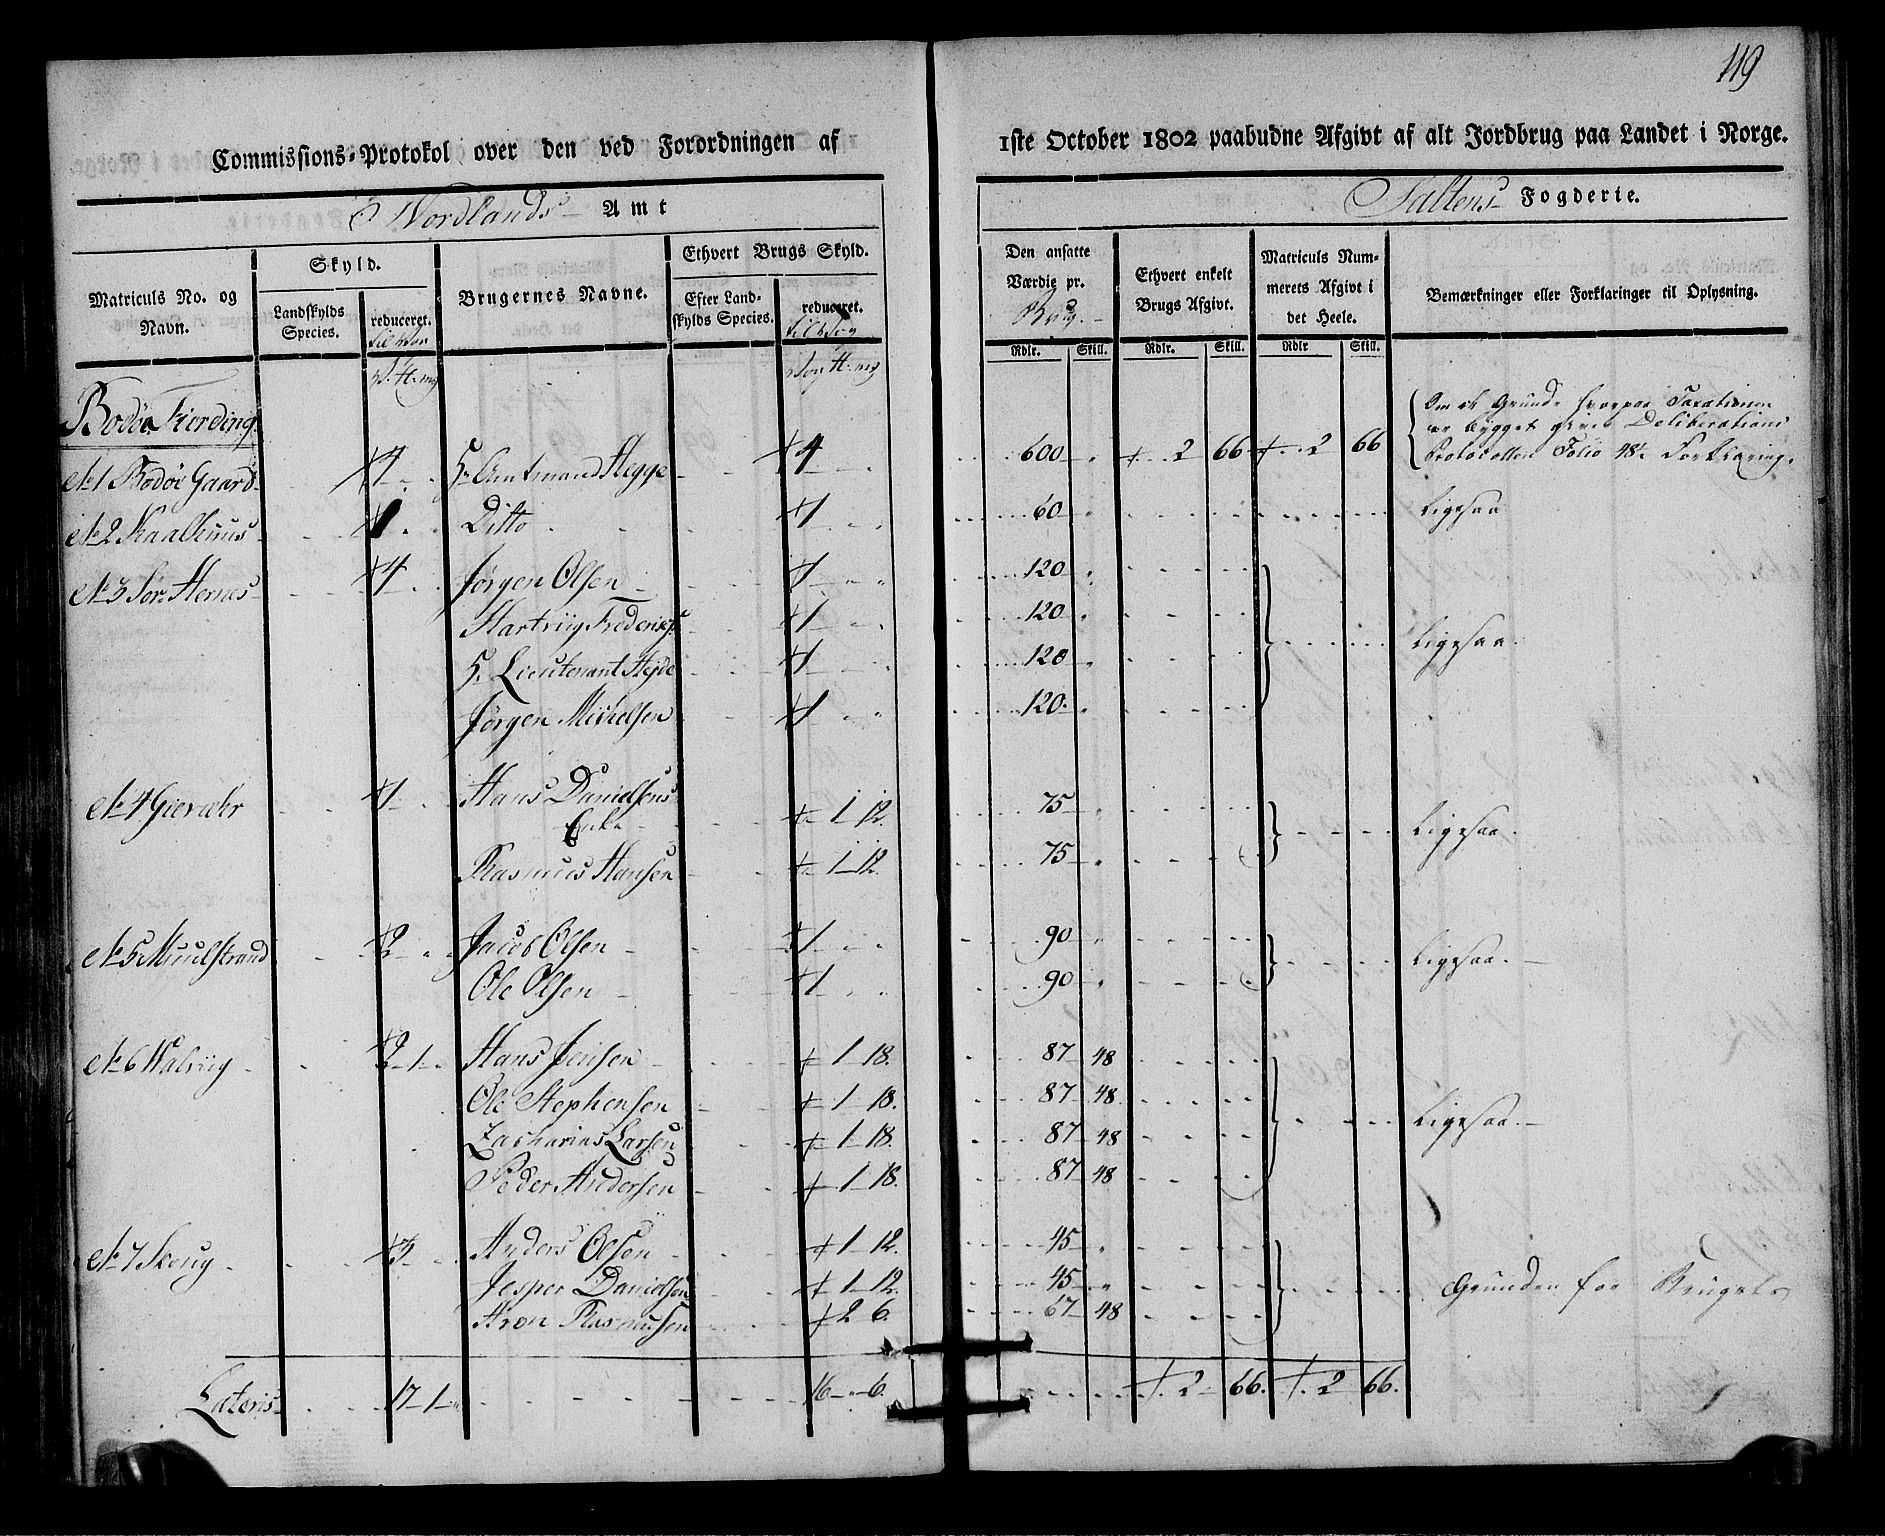 119
Commissions-Protokol over den ved Forordningen af 1ste October 1802 paabudne Afgivt af alt Jordbrug paa Landet i Norge.
Nordlands Amt
Saltens Fogderie.
Matriculs No. og Navn.
Skyld.
Landskylds Species.
reduceret.
Brugernes Navne.
Ethvert Brugs Skyld.
Efter Landskylds Species.
reduceret.
Den ansatte Værdie pr. Brug.
Ethvert enkelt Brugs Afgivt.
Matriculs Nummerets Afgivt i det Heele.
Bemærkninger eller Forklaringer til Oplysning.
Rdlr. Skill. Rdlr. Skill. Rdlr Skill.
Bodøe Fierding
Om de Grunde hvorpaa Taxationen
er bygget giver Deliberations
Protocollen Folio 48½ Forklaring.
No 1 Bodøe Gaard 4 Sr Amtmand Hegge 4 600 2 66 2 66
No 2 Kaalhuus 1 Ditto 1 60 Ligesaa
No 3 Sør Hernes 4 Jørgen Olsen 1 120
Hartviig Frederiks: 1 120 Ligesaa
Sr Lieutenant Heyde 1 120
Jørgen Michelsen 1 120
No 4 Gieræhr 1 Hans Danielsens
Enke 1 12. 75 Ligesaa.
Rasmus Hansen 1 12. 75
No 5 Muulstrand 2 Jacob Olsen 1 90 Ligesaa.
Ole Olsen 1 90
No 6 Walviig 2 1 Hans Jensen 1 18. 87 48
Ole Stephensen 1 18. 87 48
Zacharias Larsen 1 18. 87 48 Ligesaa.
Peder Andersen 1 18. 87 48
No 7 Skoug 3 Anders Olsen 1 12. 45
Jesper Danielsen 1 12. 45 Grunden for Brugets
Aron Rasmusen 2 6. 67 48
Lateris 17 1 16 6. 2 66. 2 66.